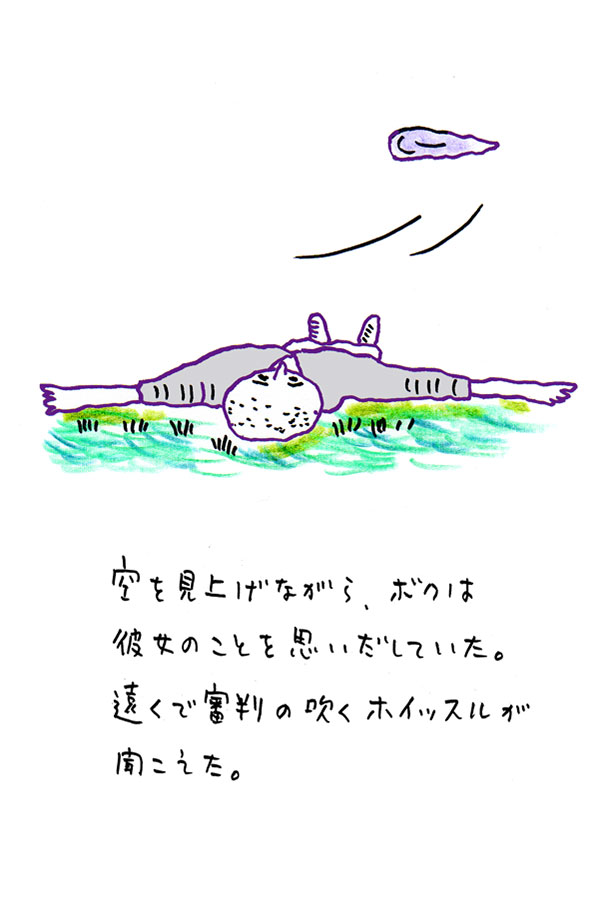 空を見上げながら、ボクは
彼女のことを思いだしていた。
遠くで審判の吹くホイッスルが
聞こえた。